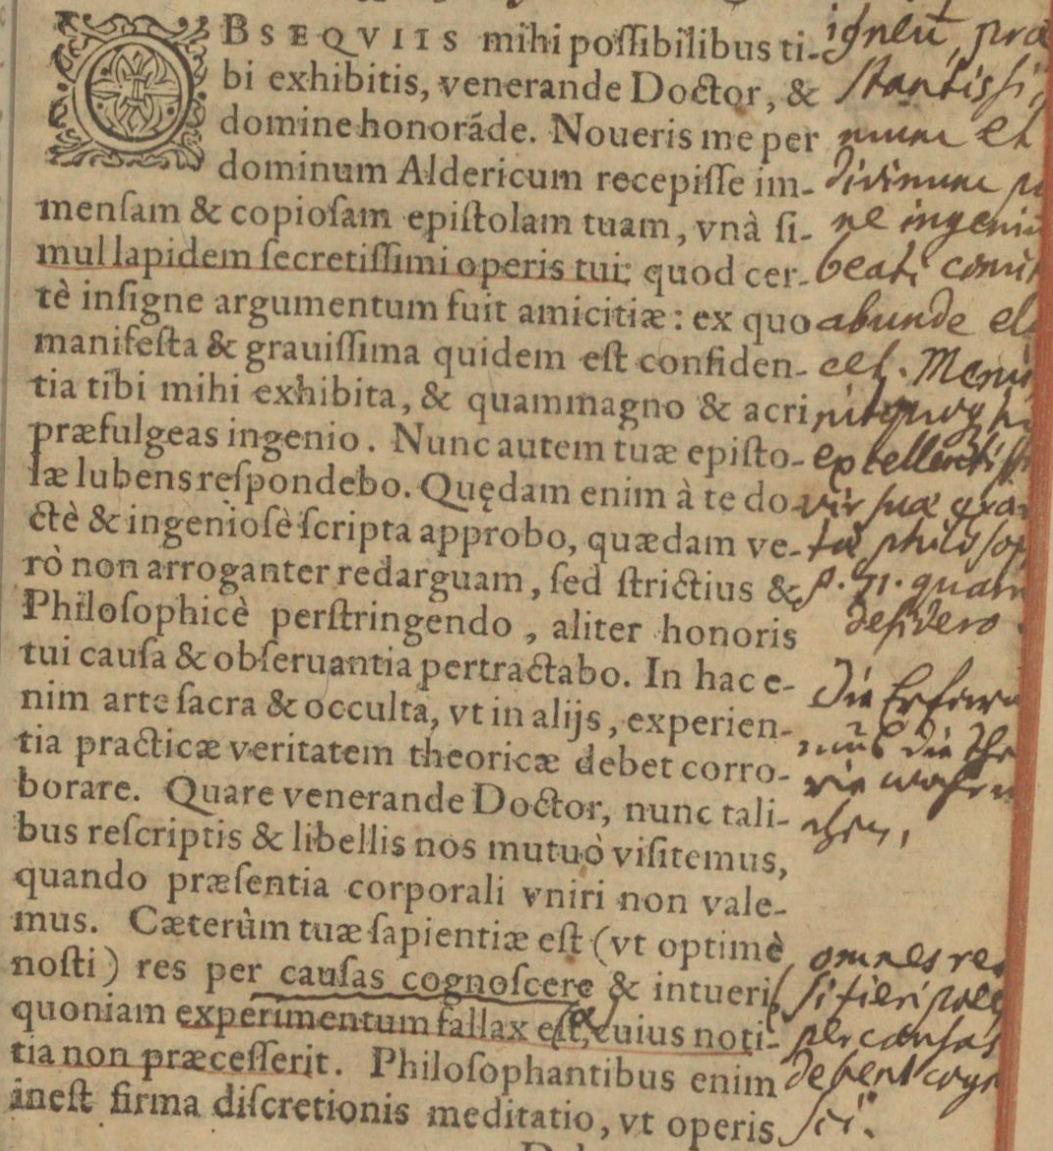 OBSEQVIIS mihi possibilibus ti-
bi exhibitis, venerande Doctor, &
domine honorãde. Noueris me per
dominum Aldericum recepisse im-
mensam & copiosam epistolam tuam, vnà si-
mul lapidem secretissimi operis tui; quod cer-
tè insigne argumentum fuit amicitiæ: ex quo
manifesta & grauissima quidem est confiden-
tia tibi mihi exhibita, & quam magno & acri
præfulgeas ingenio. Nunc autem tuæ episto-
læ lubens respondebo. Quędam enim à te do-
ctè & ingeniosè scripta approbo, quædam ve-
rò non arroganter redarguam, sed strictius &
Philosophicè perstringendo, aliter honoris
tui causa & obseruantia pertractabo. In hac e-
nim arte sacra & occulta, vt in alijs, experien-
tia practicæ veritatem theoricæ debet corro-
borare. Quare venerande Doctor, nunc tali-
bus rescriptis & libellis nos mutuò visitemus,
quando præsentia corporali vniri non vale-
mus. Cæterùm tuæ sapientiæ est (vt optimè
nosti) res per causas cognoscere & intueri,
quoniam experimentum fallax est, cuius noti-
tia non præcesserit. Philosophantibus enim
inest firma discretionis meditatio, vt operis
igneũ, præ
stantissi
mum et
divinum
ne ingeniũ
beati comit
abunde
Menu
excellentiss
vir suæ
philosop
p. 71. quam
desidero.
Die
die
omnes res
si fieri
per causas
debent cogn
sci.